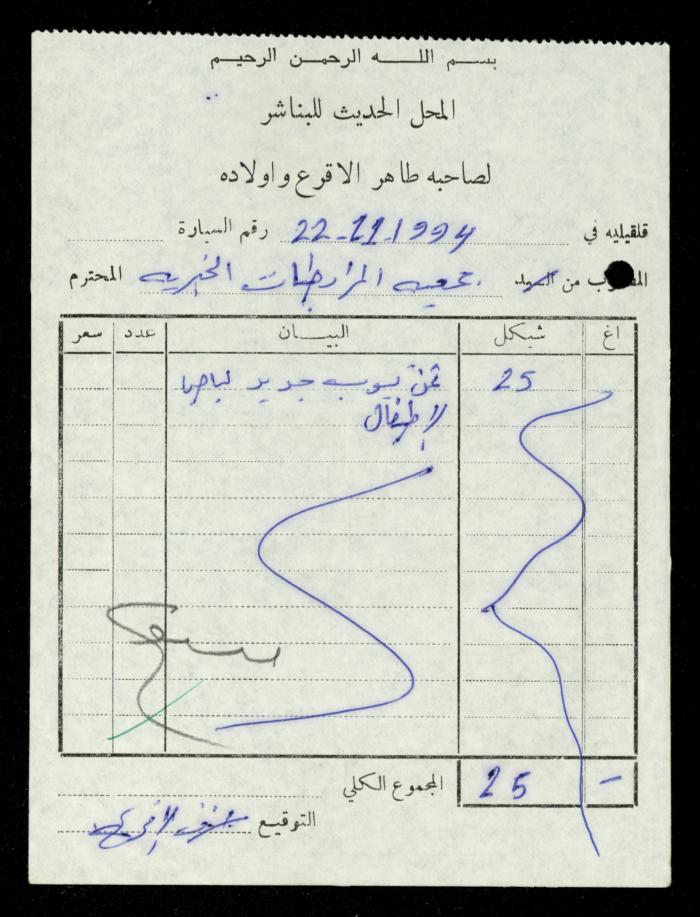 بسم الله الرحمن الرحيم
المحل الحديث للبناشر
لصاحبه طاهر الاقرع واولاده
قلقيليه في 22-11-1994 رقم السيارة
المطلوب من السيد جمعيه المرابطات الخيريه المحترم
اغ شيكل البيــان عدد سعر
25 ثمن تيوب جديد لباص
الاطفال
المجموع الكلي 25 -
التوقيع